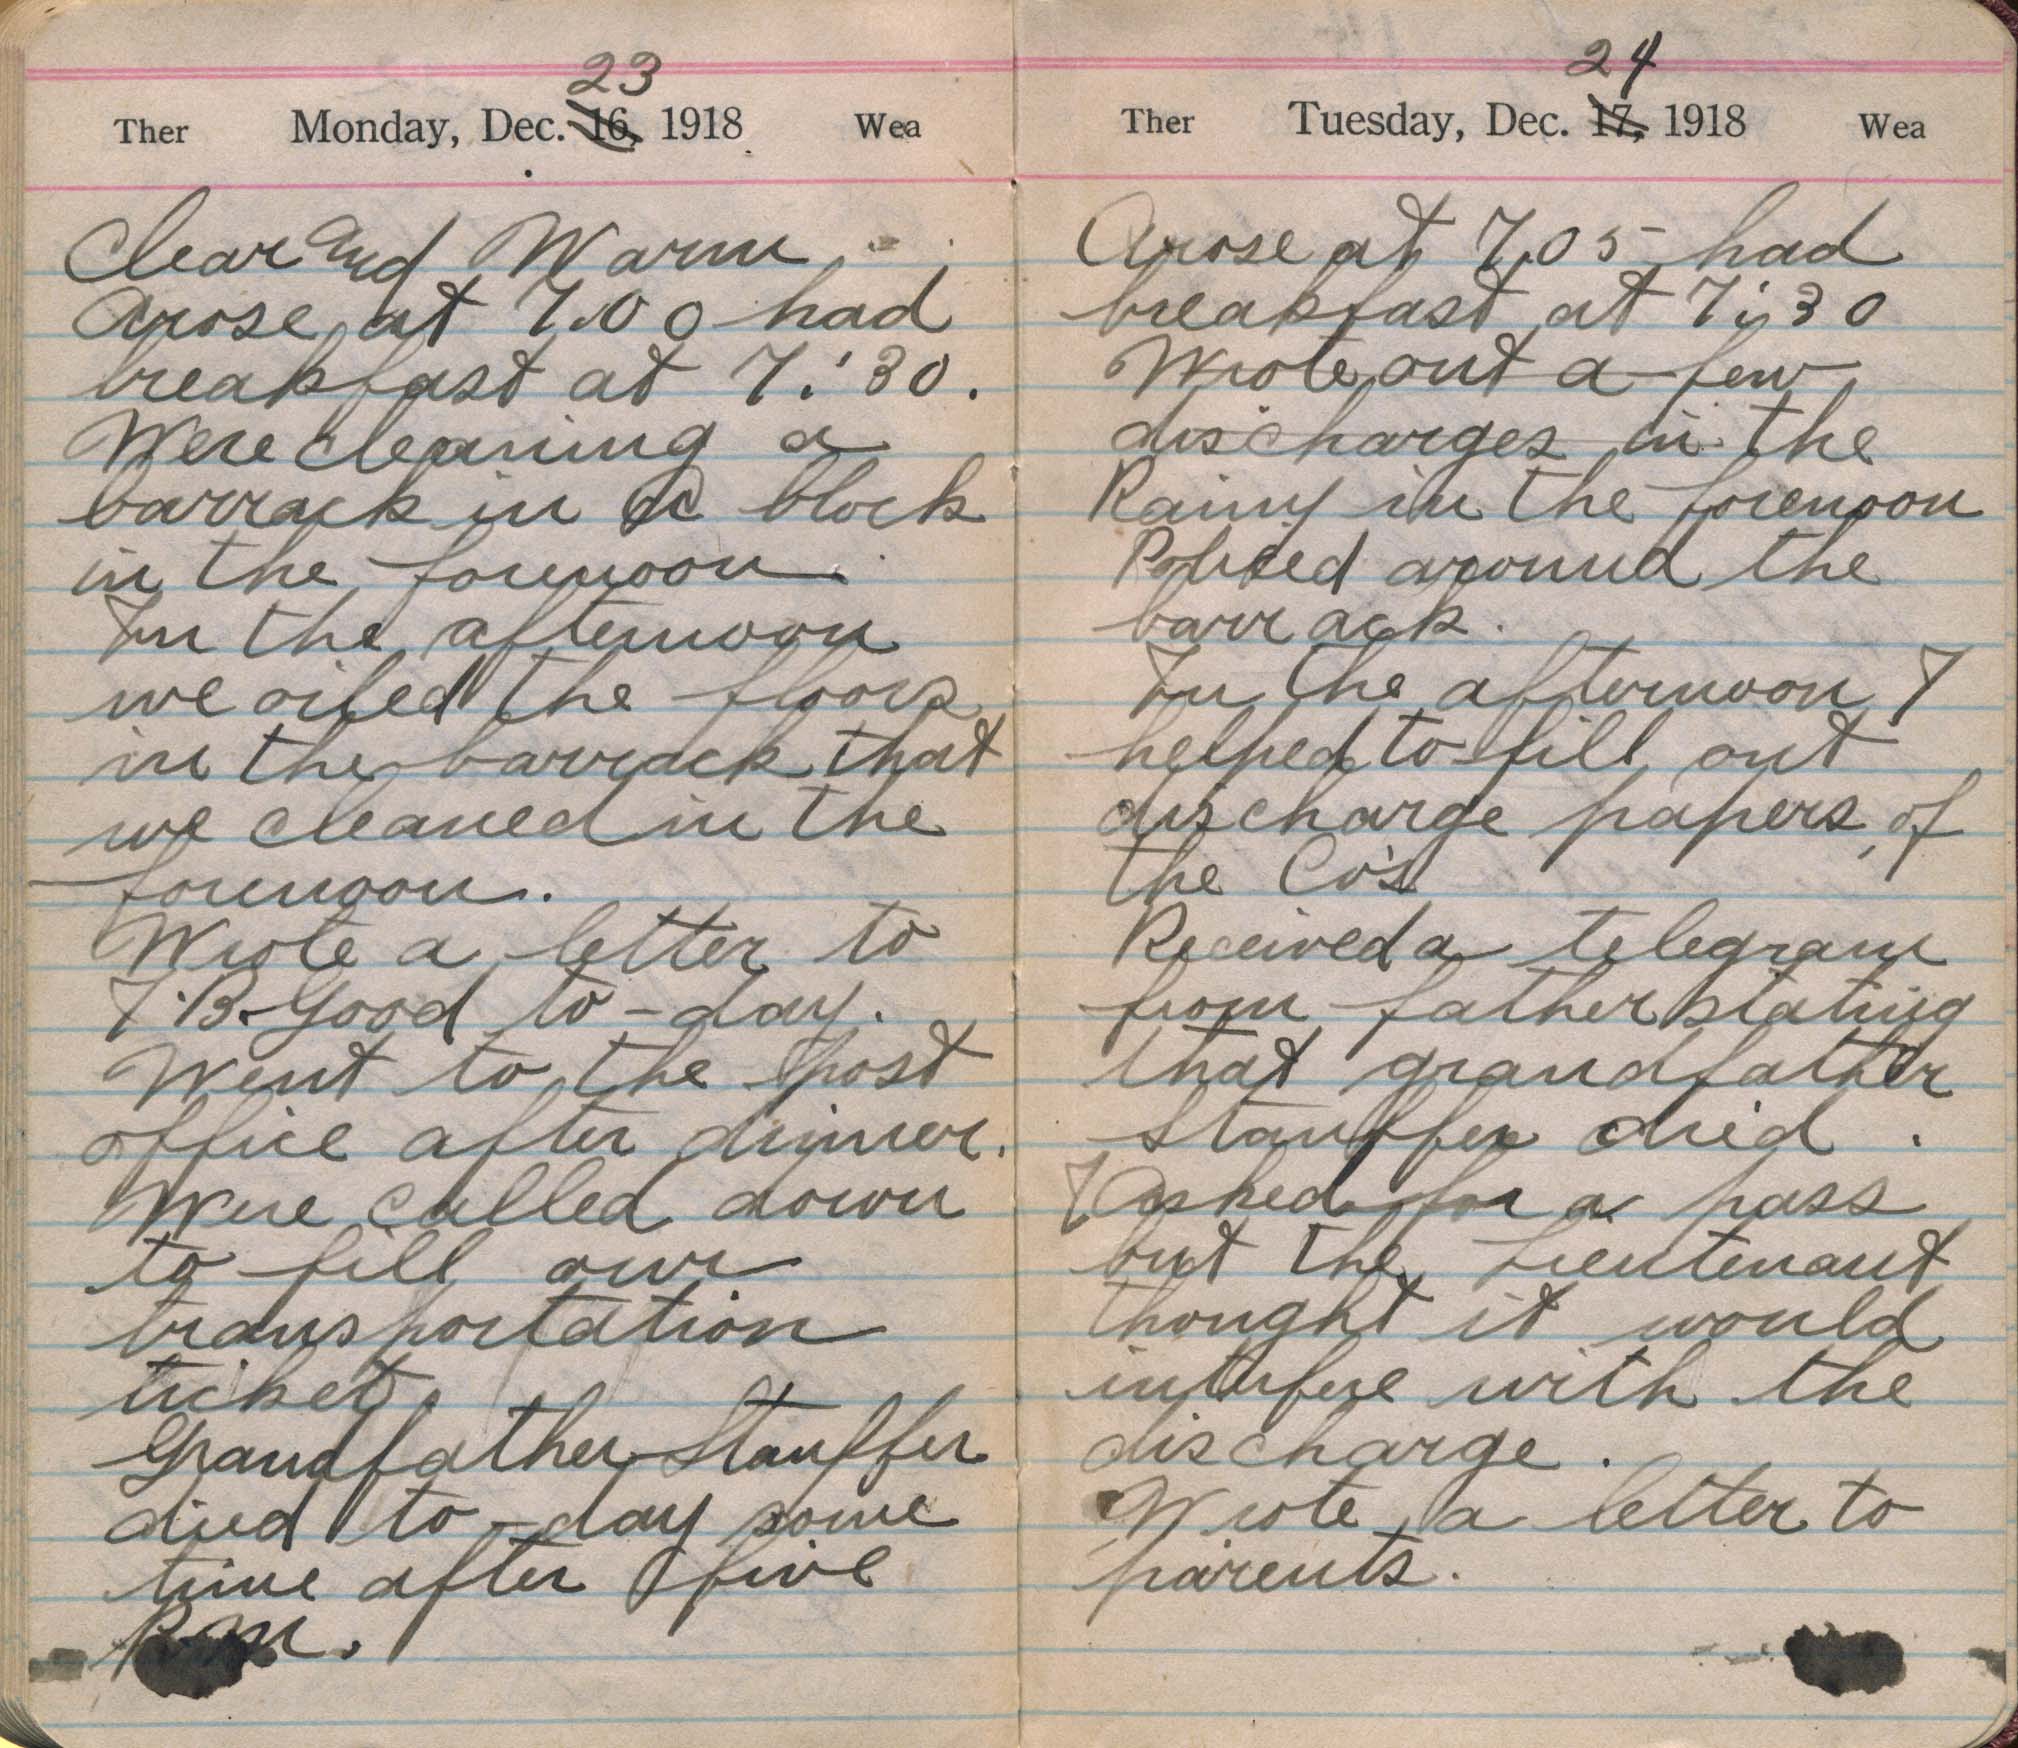 23
Ther Monday, Dec. 16, 1918 Wea
Clear and Warm
Arose at 7.00 had
breakfast at 7:30.
Were cleaning a
barrack in block
in the forenoon.
In the afternoon
we oiled the floors
in the barrack that
we cleaned in the
forenoon.
Wrote a letter to
B. Good to-day.
Went to the post
office after dinner.
Were called down
to fill our
transportation
ticket.
Grandfather Stauffer
died to-day some
time after five
P.M.
24
Ther Tuesday, Dec. 17, 1918 Wea
Arose at 7.05 had
breakfast at 7:30
Wrote out a few
discharges in the
Rainy in the forenoon
Policed around the
barrack.
In the afternoon I
helped to fill out
discharge papers, of
the Co's
Received a telegram
from father stating
that grandfather
Stauffer died.
I Asked for a pass
but the Lieutenant
thought it would
interfere with the
discharge.
Wrote a letter to
parents.